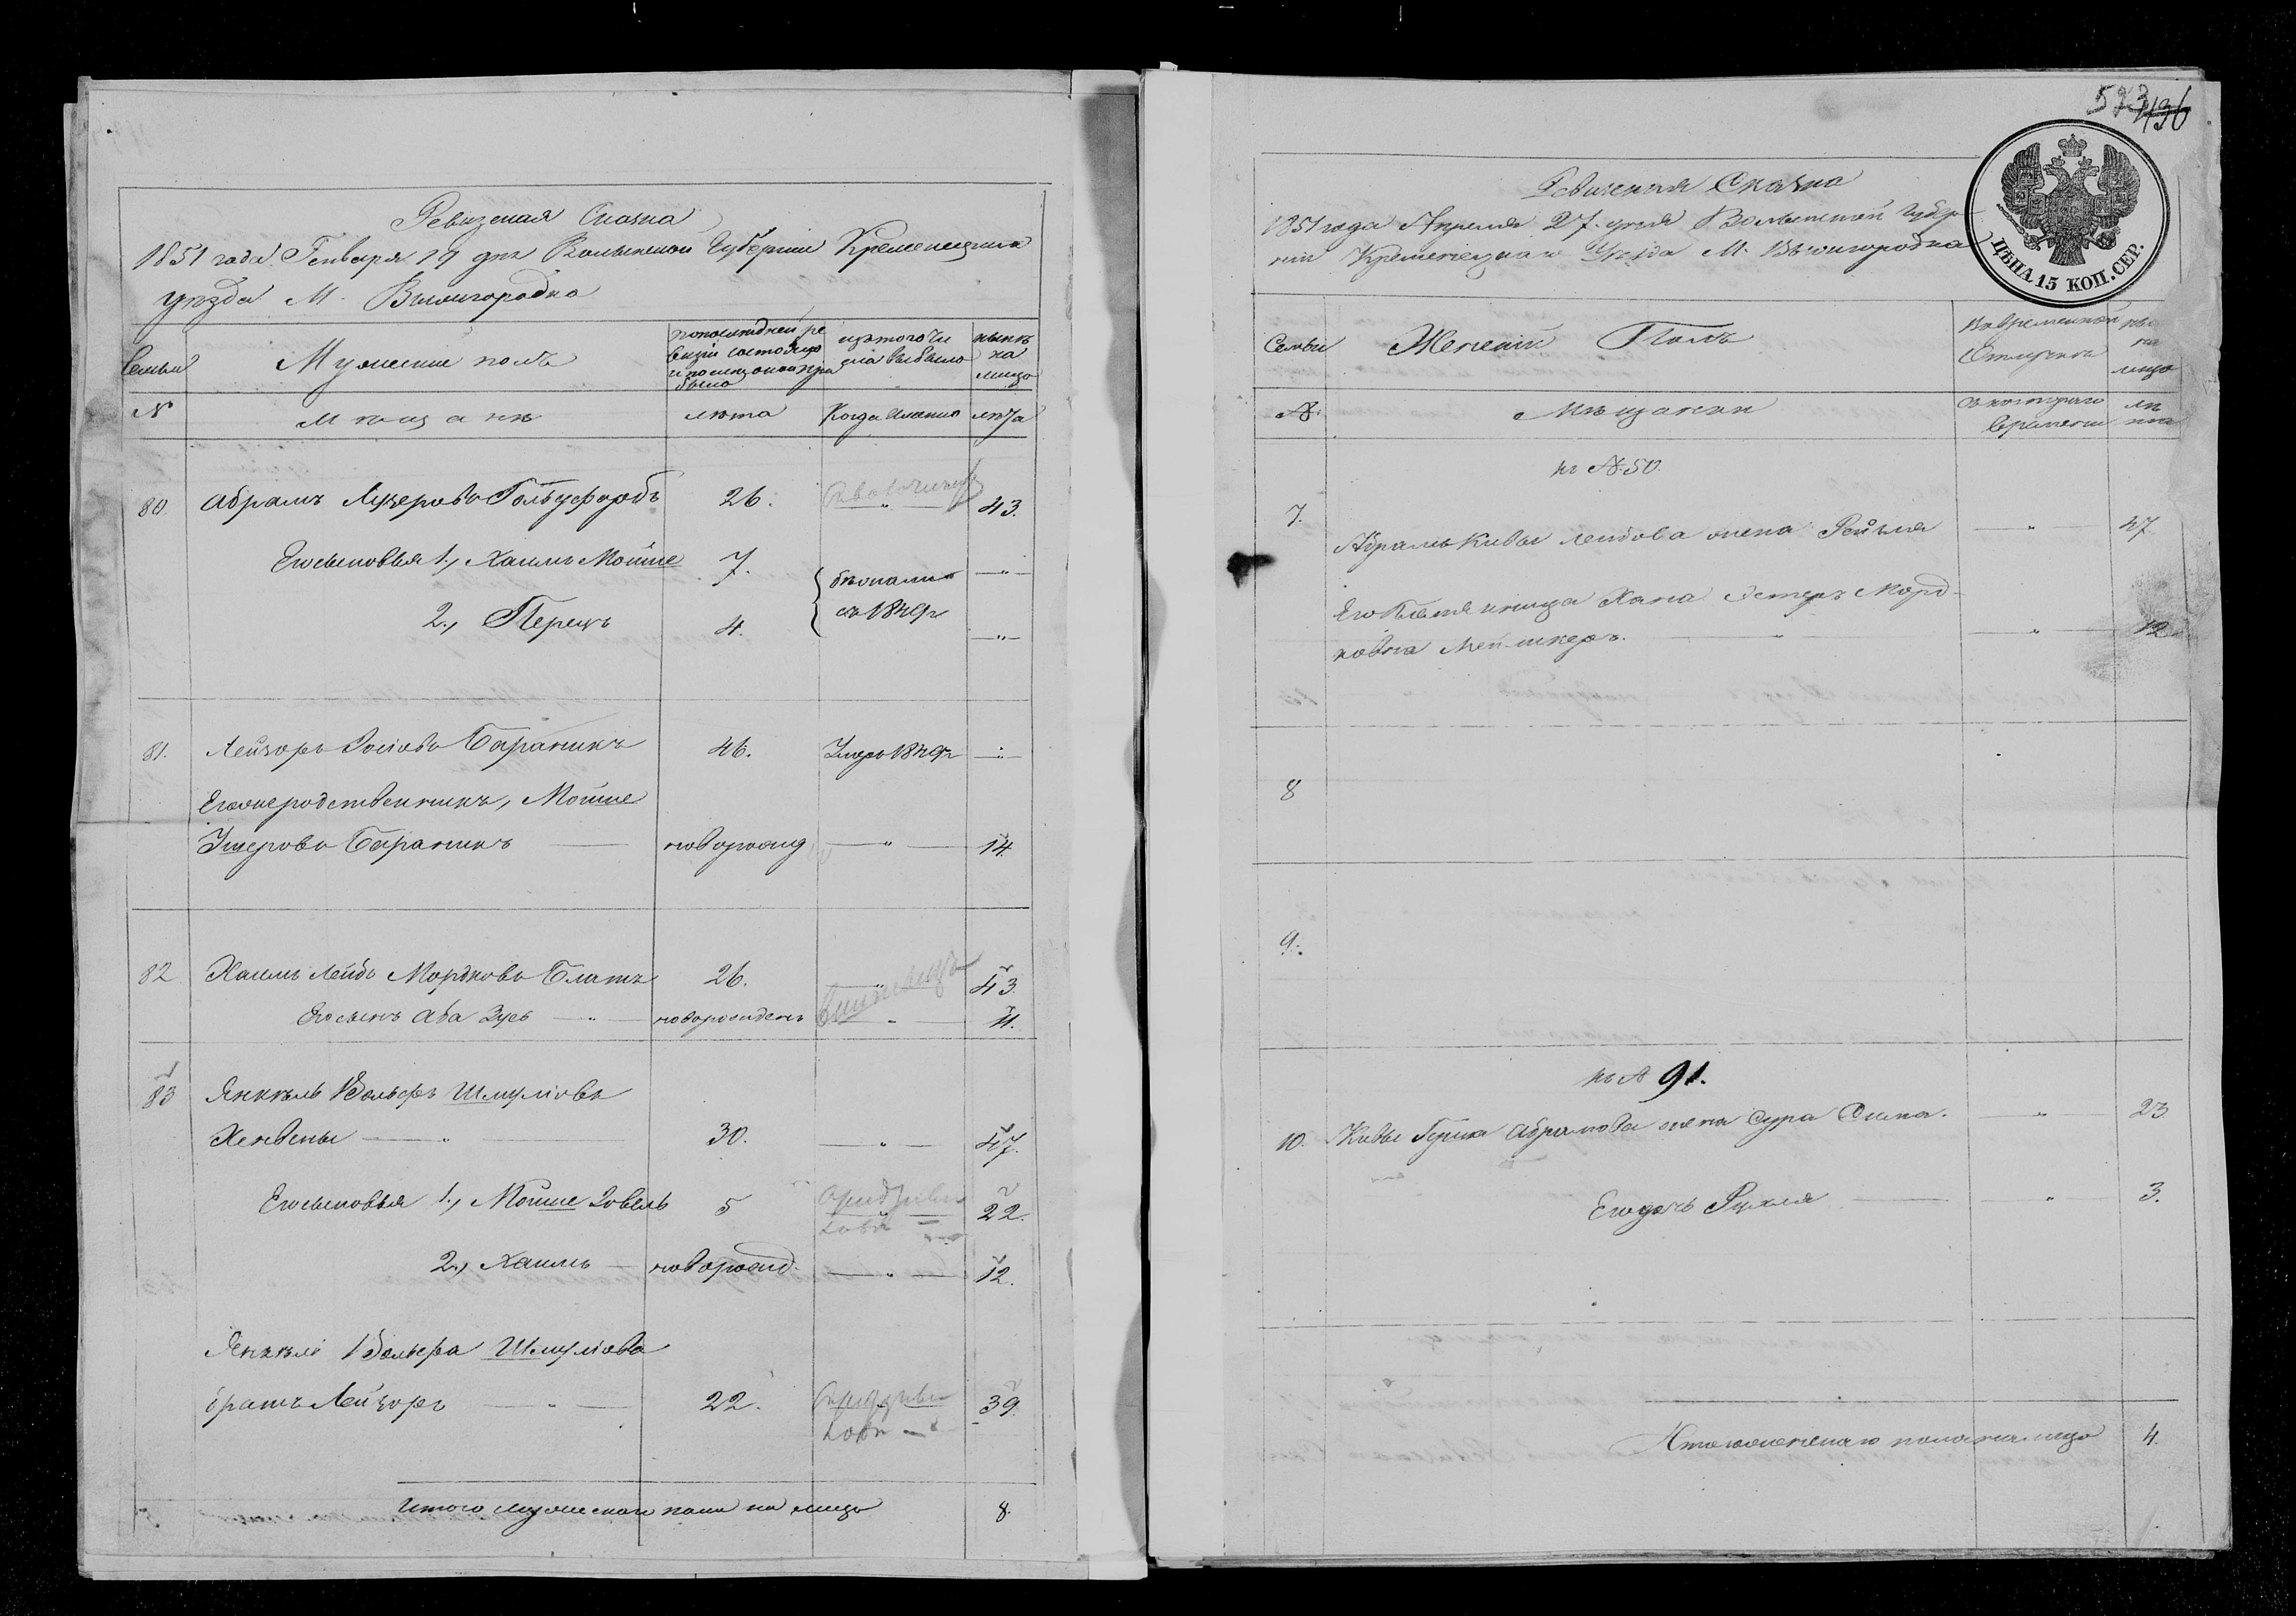 Ревизская Сказка
1851 года Генваря 19 дня Волынской Губернии Кременецкаго
уезда М. Вышгородка
Семьи
Мужеский полъ
по последней ре
визіи состояло
и после оной при
было
изъ того чи
сла выбыло
ныне
на
лицо
№
Мещане
лета
Когда именно
лета
80
Абрамъ Лузеровъ Гольдфарбъ
26.
43.
Его сыновья 1., Хаимъ Мошке
7.
бежали
—„—
2., Перецъ
4.
съ 1849 г
—„—
81.
Лейзоръ Іосіовъ Бараникъ
46.
Умеръ 1849 г
—„—
Его же родственникъ, Мошке
Ушеровъ Бараникъ
новорожд
—„—
14.
82
Хаимъ Лейбъ Мордковъ Блатъ
26.
43
Его сынъ Аба Зусь —„—
новорожденъ
—„—
11.
83
Янкель Вольфъ Шмуліовъ
—„—
30.
—„—
47.
Его сыновья 1., Мошке Іовель
5
22.
2., Хаимъ
новорожд.
—„—
12.
Янкеля Вольфа Шмуліова
братъ Лейзоръ —„—
22.
39.
Итого мужеска пола на лицо
8.
523
436
Ревизская Сказка
1851 года Апреля 27. дня Волынской Губер-
ніи Кременецкаго Уезда М. Вышгородка
ЦѢНА 15 КОП. СЕР.
Семьи
Женскій Полъ
Во временной
Отлучке
на
лицо
№.
Мещанки
Съ котораго
времени
ле
та
къ №. 50.
7.
Абрамъ Кивы Лейбова жена Рейзля
—„—
47.
Его Племянница Хана Эстеръ Морд-
ковна
—„—
12
8
9.
къ № 91.
10.
Кивы Герша Абрамова жена Сура Дина.
—„—
23
Его дочь Рухля
—„—
3.
Итого женскаго пола на лицо
4.